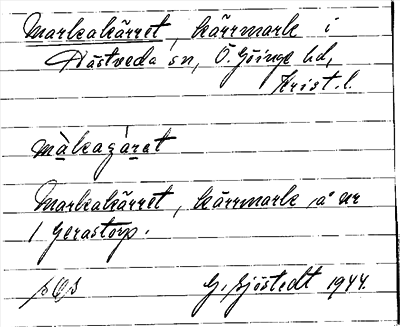 Markakärret, kärrmark i
Hästveda sn, Ö. Göinge hd,
Krist. l.
màkagáret
Markakärret, kärrmark, å nr
1 Gerastorp.
G. Sjöstedt 1944.